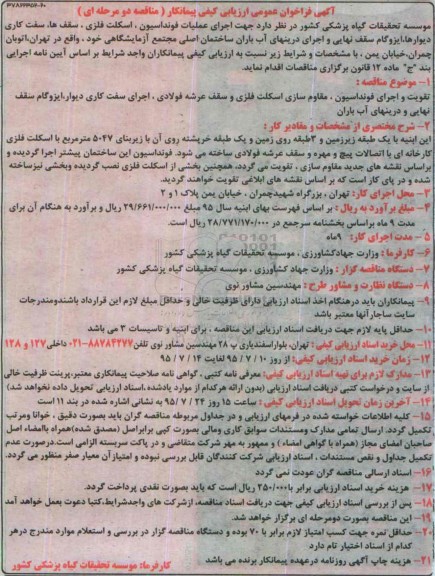 آگهی فراخوان عمومی ارزیابی کیفی پیمانکار ( مناقصه دو مرحله ای )
موسسه تحقیقات گیاه پزشکی کشور در نظر دارد جهت اجرای عملیات فونداسیون ، اسکلت فلزی ، سقف ها، سفت کاری
دیوارها،ایزوگام سقف نهایی و اجرای دربنهای آب باران ساختمان اصلی مجتمع آزمایشگاهی خود ، واقع در تهران،اتوبان
چمران،خیابان یمن ، با مشخصات و شرایط زیر نسبت به ارزیابی کیفی پیمانکاران واجد شرایط بر اساس آیین نامه اجرایی
بند ج" ماده ۱۲ قانون برگزاری مناقصات اقدام نماید.
۱- موضوع مناقصه :
تقویت و اجرای فونداسیون ، مقاوم سازی اسکلت فلزی و سقف عرشه فولادی ، اجرای سفت کاری دیوار،ایزوگام سقف
نهایی و دربنهای آب باران
۲- شرح مختصری از مشخصات و مقادیر کار :
این ابنیه با یک طبقه زیرزمین و ۳طبقه روی زمین و یک طبقه خرپشته روی آن با زیربنای ۵۰۴۷ مترمربع با اسکلت فلزی
کارخانه ای با اتصالات پیچ و مهره و سقف عرشه فولادی ساخته می شود. فونداسیون این ساختمان پیشتر اجرا گردیده و
براساس نقشه های جدید مقاوم سازی ، تقویت می گردد. همچنین بخشی از اسکلت فلزی نصب گردیده وبخشی نیزساخته
شده و در پای کار است که بر اساس نقشه های ابلاغی تقویت خواهند گردید.
۳- محل اجرای کار: تهران ، بزرگراه شهیدچمران ، خیابان یمن پلاک ۱ و ۲
۴- مبلغ برآورد به ریال : بر اساس فهرست بهای ابنیه سال ۹۵ مبلغ ۲۹/۶۶۱/۰۰۰/۰۰۰ ریال و برآورد به هنگام آن برای
مدت ۹ ماه براساس بخشنامه سرجمع در ۲۸/۷۷۱/۱۷۰/۰۰۰ ریال است.
۵ - مدت اجرای کار: ۹ماه
۶- کارفرما : وزارت جهادکشاورزی ، موسسه تحقیقات گیاه پزشکی کشور
۷- دستگاه مناقصه گزار : وزارت جهاد کشاورزی ، موسسه تحقیقات گیاه پزشکی کشور
۸- دستگاه نظارت و مشاور طرح : مهندسین مشاور نوی
۹- پیمانکاران باید درهنگام اخذ اسناد ارزیابی دارای ظرفیت خالی و حداقل مبلغ لازم این قرارداد باشندومندرجات
سایت ساجار آنها معتبر باشد
۱۰- حداقل پایه لازم جهت دریافت اسناد ارزیابی این مناقصه ، برای ابنیه و تاسیسات ۳ می باشد
۱۱- محل خرید اسناد ارزیابی کیفی : تهران، بلواراسفندیاری پ ۲۸ مهندسین مشاور نوی تلفن۸۸۷۸۴۲۷۷-۰۲۱ داخلی۱۲۷ و ۱۲۸
۱۲- زمان خرید اسناد ارزیابی کیفی: از روز ۱۰ / ۷ / ۹۵ لغایت ۱۴ / ۷ / ۹۵
۱۳- مدارک لازم برای تهیه اسناد ارزیابی کیفی: معرفی نامه کتبی ، گواهی نامه صلاحیت پیمانکاری معتبر،پرینت ظرفیت خالی
از سایت و درخواست کتبی دریافت اسناد ارزیابی (بدون ارائه هرکدام از موارد یادشده ،اسناد ارزیابی تحویل داده نخواهد شد)
۱۴- آخرین زمان تحویل اسناد ارزیابی کیفی : ساعت ۱۵ روز ۲۴ / ۷ / ۹۵ به نشانی اشاره شده در بند ۱۱ است
۱۵- کلیه اطلاعات خواسته شده در فرمهای ارزیابی و در جداول مربوطه مناقصه گران باید بصورت دقیق ، خوانا ومرتب
تکمیل گردد. ارسال تمامی مدارک ومستندات سوابق کاری ومالی بصورت کپی برابراصل (مصدق شده)همراه باامضاء اصل
صاحبان امضای مجاز (همراه با گواهی امضاء ) و ممهور به مهر شرکت متقاضی و در پاکت سربسته الزامی است.درصورت عدم
تکمیل جداول و نقص مستندات ، اسناد ارزیابی شرکت کنندگان قابل بررسی نبوده و امتیاز آن معیار صفر منظور می گردد.
۱۶- اسناد ارسالی مناقصه گران عودت نمی گردد
۱۷- هزینه خرید اسناد ارزیابی برابر با۲۵۰/۰۰۰ ریال است که باید بصورت نقدی پرداخت گردد.
۱۸- پس از بررسی اسناد ارزیابی کیفی جهت دریافت اسناد مناقصه، ازشرکت های واجدشرایط،کتبا دعوت بعمل خواهد آمد
۱۹- این مناقصه بصورت دومرحله ای برگزار خواهد شد.
۲۰- حداقل نمره جهت کسب امتیاز لازم برابر با ۷۰ بوده و دستگاه مناقصه گزار در بررسی و استعلام موارد مندرج درهر
کدام از اسناد اختیار تام دارد
۲۱- هزینه چاپ آگهی روزنامه درعهده پیمانکار برنده می باشد
کارفرما: موسسه تحقیقات گیاه پزشکی کشور